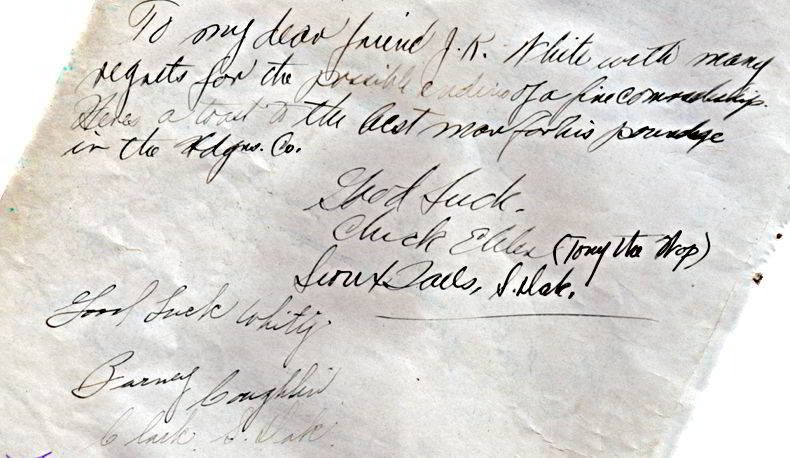 To my dear friend J.K. White with many
regrets for the possible ending of a fine comradeship.
Heres a toast to the best man for his poundage
in the Hdqrs. Co.
Good Luck.
Chuck (Tony the Wop)
Sioux Falls, S. Dak.
Good Luck Whity.
Barney Coughlin
Clark S. Dak.